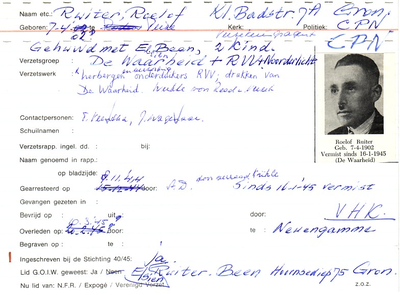 Naam etc. Ruiter, Roelof Kl. Badstr. 7A Gron.
Geboren: 7-4- Kerk: Politiek: CPN
CPN
Gehuwd met El. Been, 2 kind.
Verzetsgroep De Waarheid + RVV + Noorderlicht
Verzetswerk herbergen onderduikers RVV, drukken van
De Waarheid.
Contactpersonen:
Schuilnaam :
Verzetsrapp. ingel. dd. : bij:
Naam genoemd in rapp:
op bladzijde:
Gearresteerd op door: S.D. Sinds 16-1-'45 vermist
Gevangen gezeten in :
Bevrijd op : uit : door: V.H.K.
Overleden op : te : Neuengamme
Begraven op : te :
Ingeschreven bij de Stichting 40/45: ja.
Lid G.O.I.W. geweest: Ja / Neen El. Ruiter-Been Hunsediep 75 Gron.
Nu lid van: N.F.R. / Expogé / Verenigd Verzet z.o.z.
Roelof Ruiter
Geb. 7-4-1902
Vermist sinds 16-1-1945
(De Waarheid)